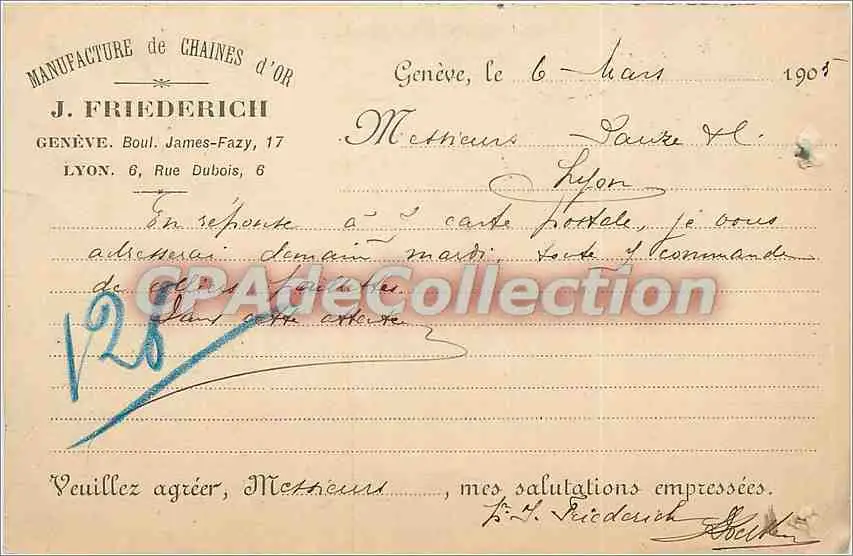 MANUFACTURE de CHAINES d'OR
J. FRIEDERICH
GENÈVE. Boul. James-Fazy, 17
LYON. 6, Rue Dubois, 6
Genève, le 6 Mars 1905
Messieurs
Lyon
En réponse à carte postale, je vous
adresserai demain mardi, toute commande
de colliers
CPAdeCollection.com
Dans cette attente
128
Veuillez agréer, Messieurs, mes salutations empressées.
pr. J. Friederich